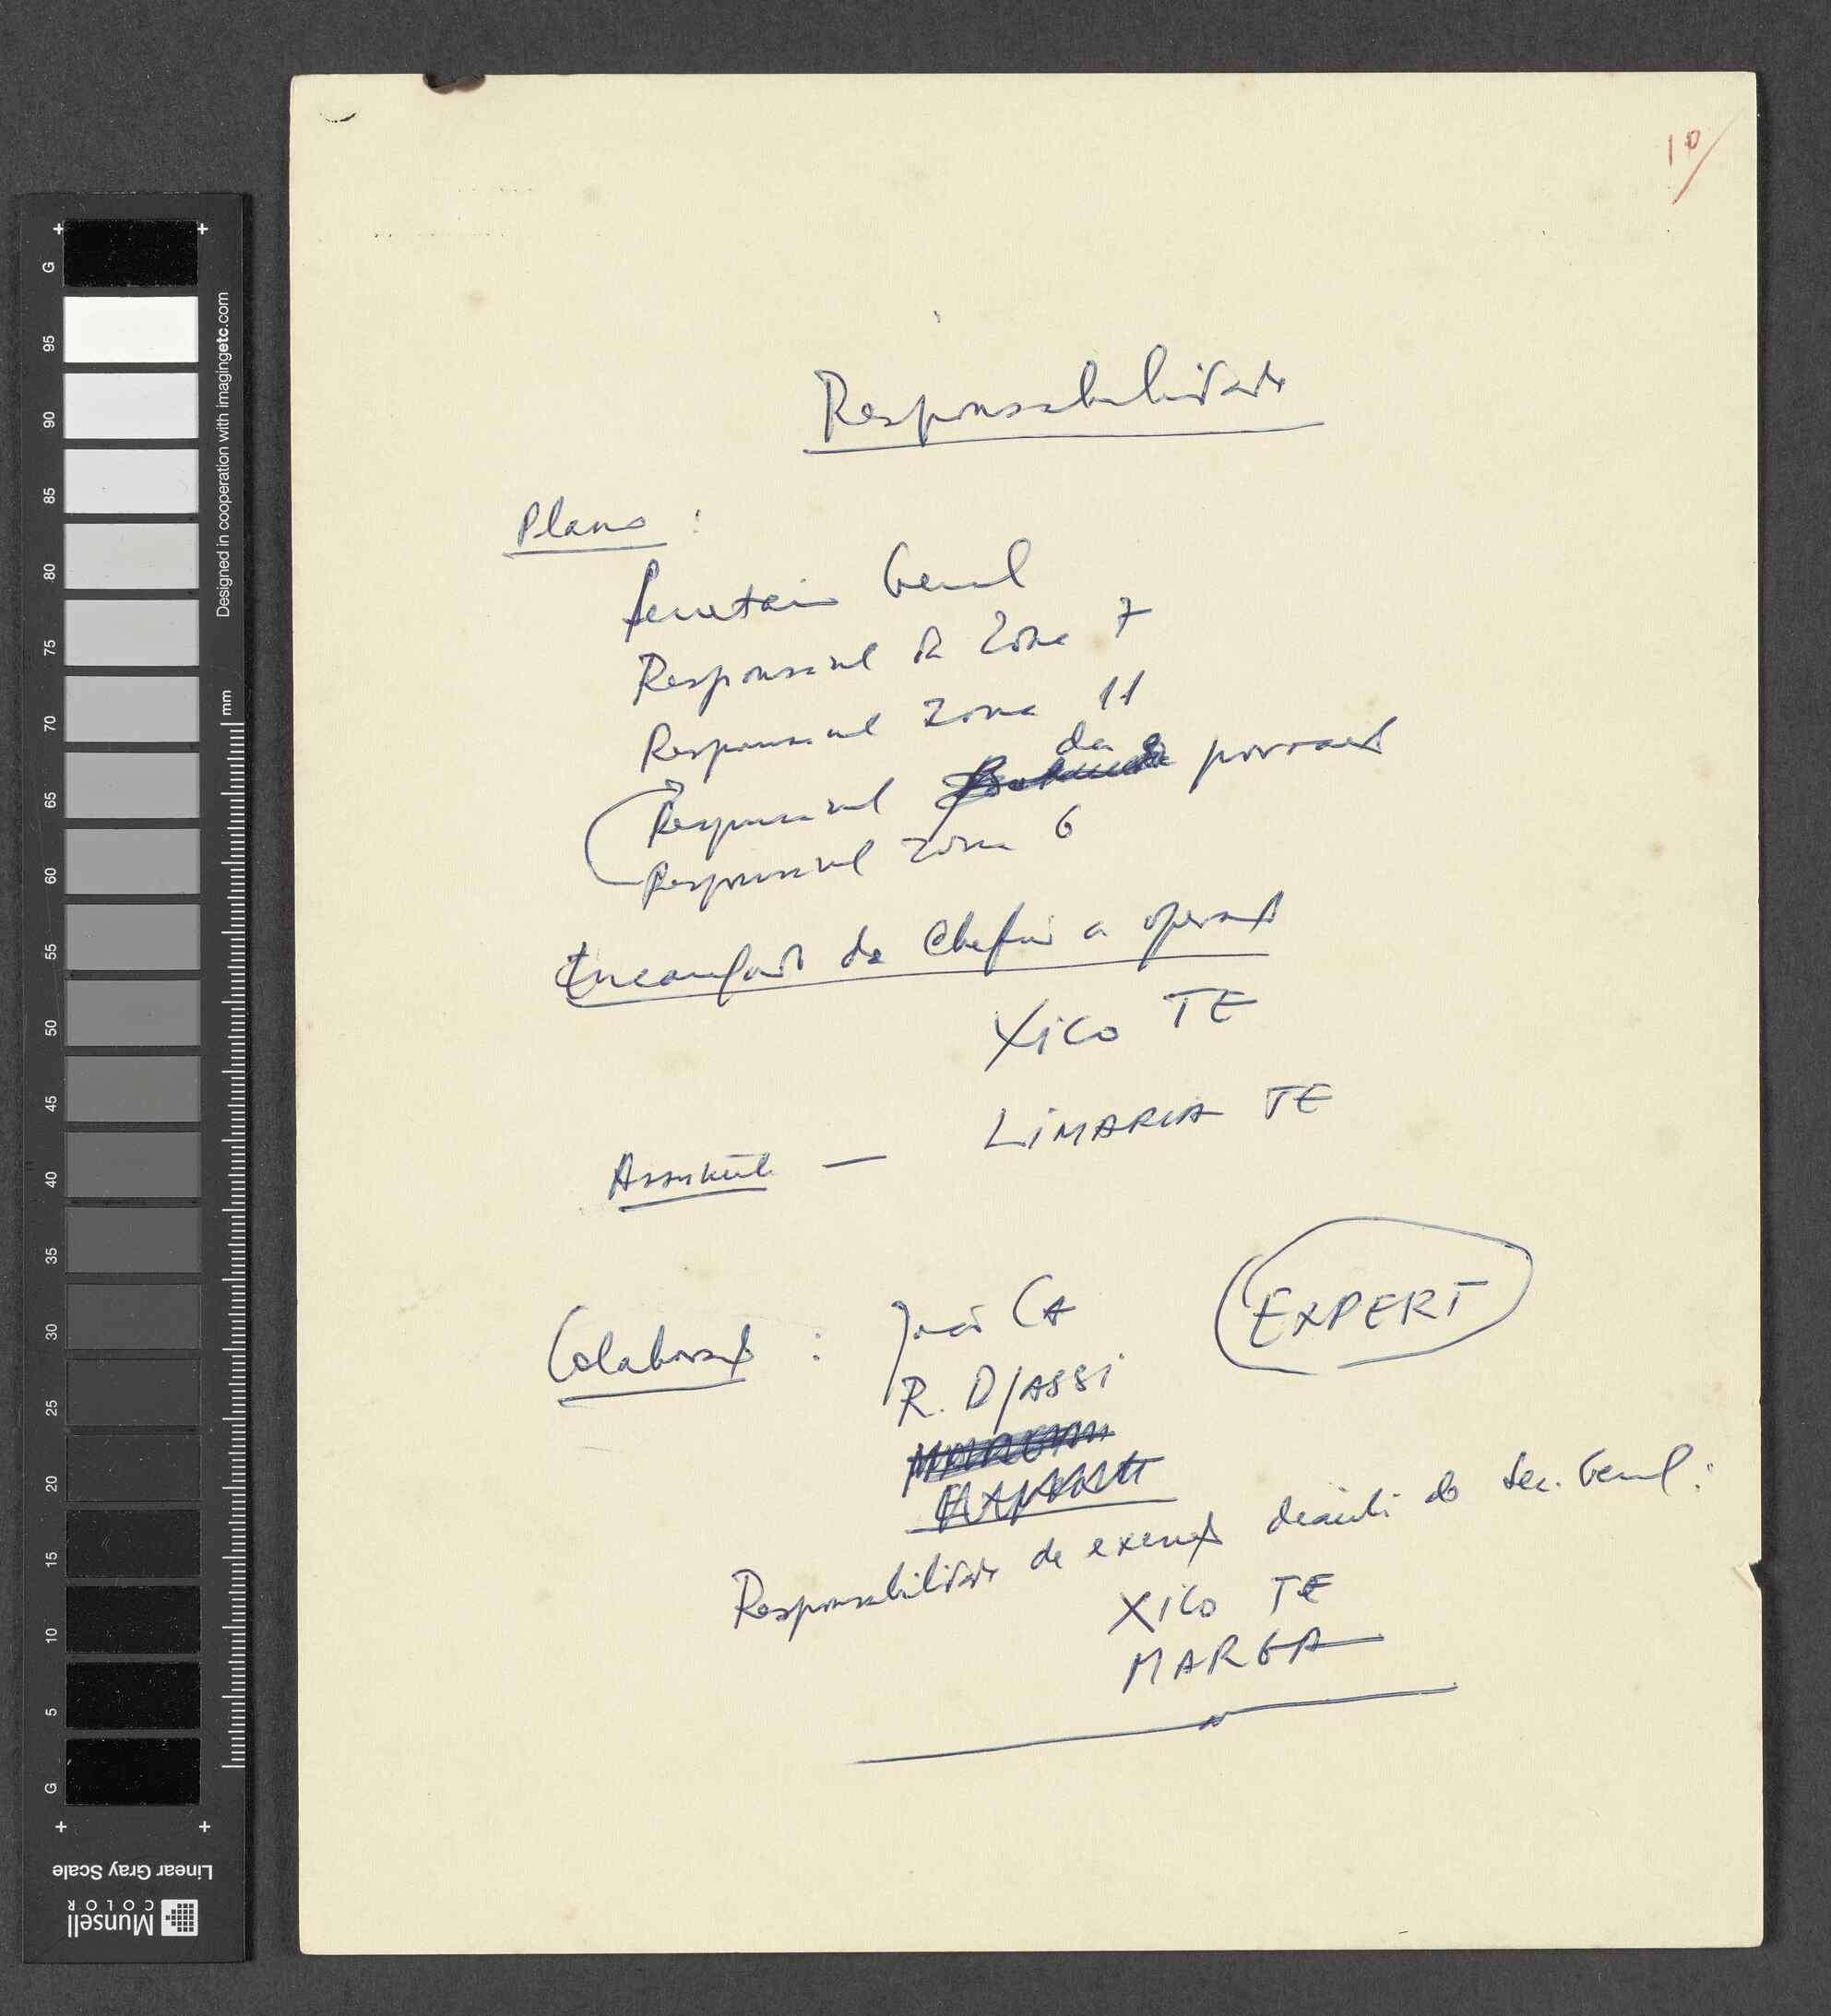 10/
Responsabilidade
Plano :
Secretário Geral
Responsável da Zona 7
Responsável Zona 11
Responsável da povoação
Responsável Zona 6
Encarregado da Chefia a operação
XICO TE
Assistente — LIMARIA TE
Colaboração : João CA
EXPERT
R. DJASSI
Responsabilidade de execução decisão do Sec. Geral :
XICO TE
MARGA
G 95 90 85 80 75 70 65 60 55 50 45 40 35 30 25 20 15 10 5 G
Designed in cooperation with imagingetc.com
mm
Linear Gray Scale
Munsell
COLOR